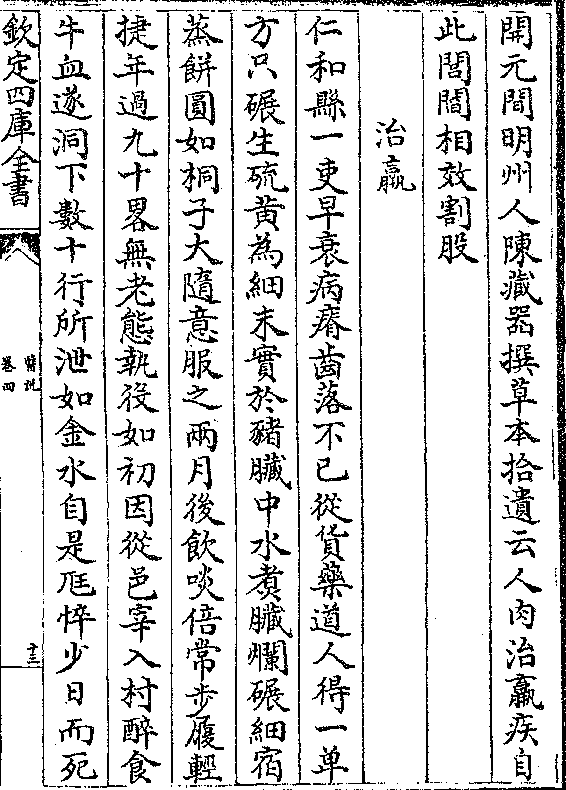 開元間明州人陳藏器撰草本拾遺云人肉治羸疾自
此閭閻相效割股
治羸
仁和縣一吏早衰病瘠齒落不已從貨藥道人得一单
方只碾生硫黄為細末實於豬臟中水煮臟爛碾細宿
蒸餅圓如桐子大隨意服之兩月後飲啖倍常步履輕
捷年過九十畧無老態執役如初因從邑宰入村醉食
牛血遂洞下數十行所泄如金水自是尫悴少日而死
欽定四庫全書
醫説
卷四
十三